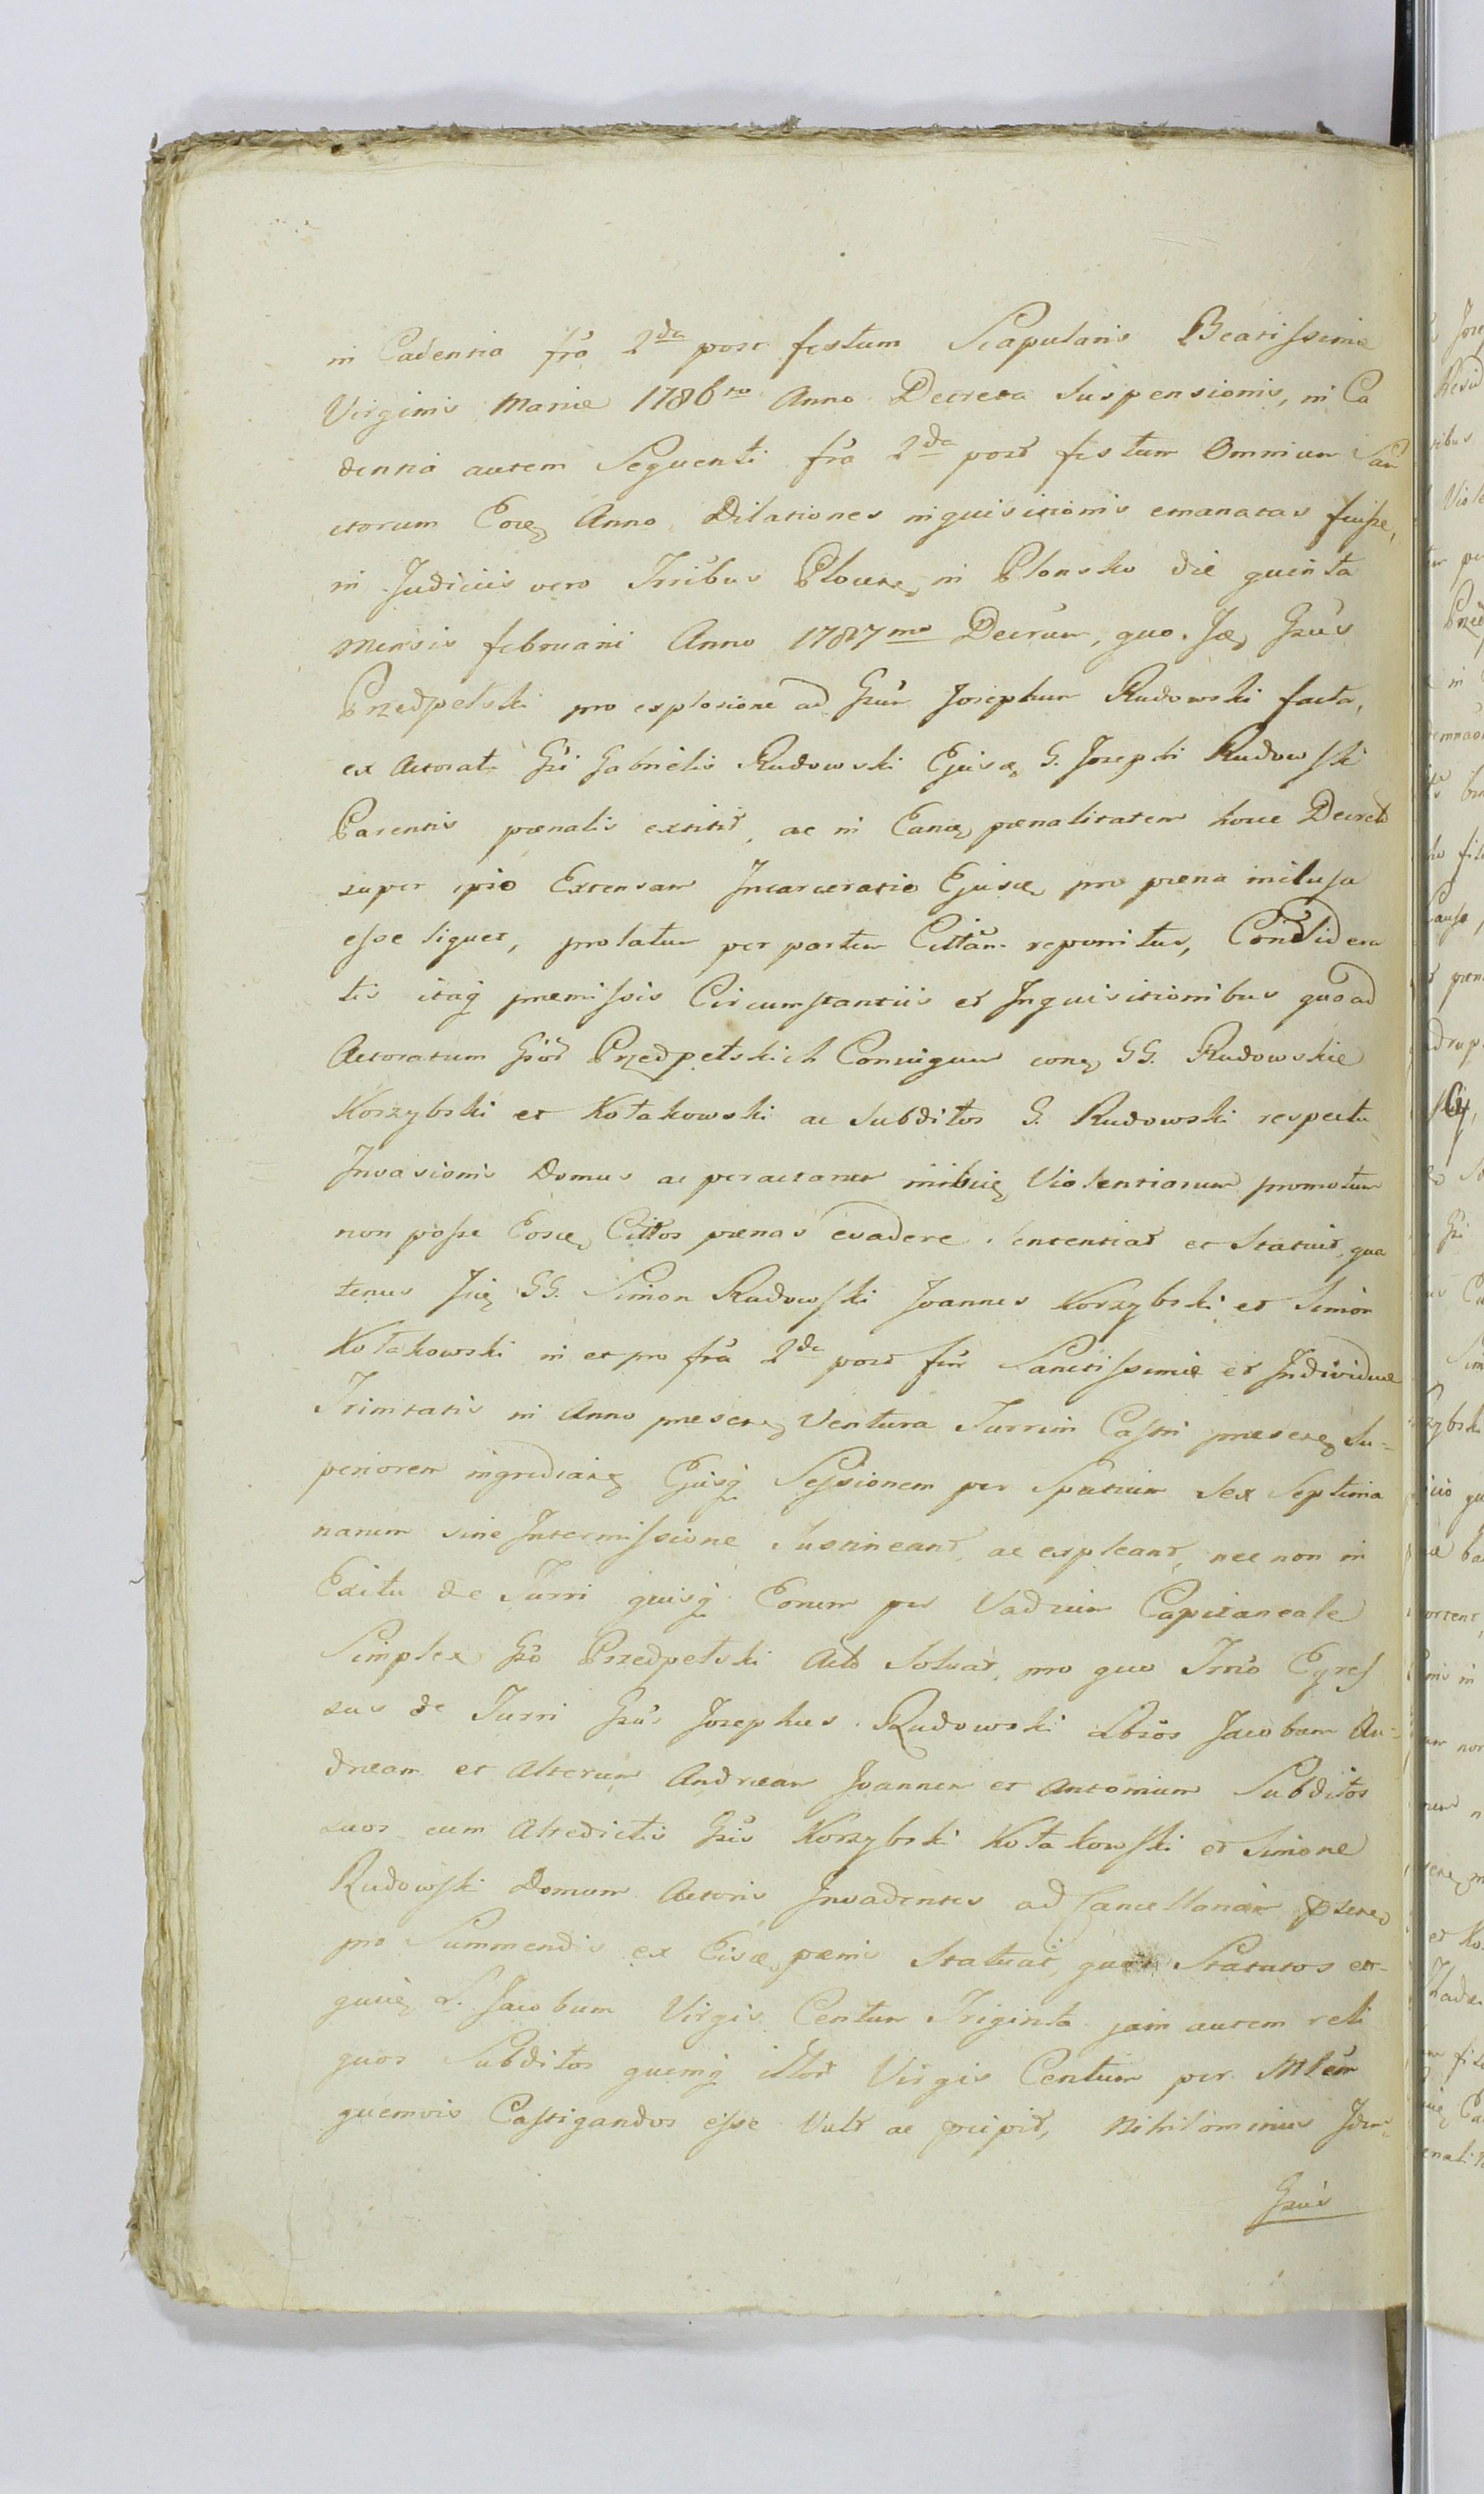 in Cadentia fra 2da post festum Scapularis Beatissimæ
Virginis Mariæ 1786to Anno Decreta Suspensionis, in Ca
dentia autem Sequenti fra 2da post festum Omnium San
ctorum Eoq Anno Dilationes inquisitionis emanatas fuisse,
in Judiciis vero Trribus Plocen in Plonsko die quinta
Mensis februarii Anno 1787mo Decrum, quo Gsus
Przedpełski pro explosione ad Gsum Josephum Rudowski facta,
ex Actoratu Gsi Gabrielis Rudowski Ejusq G. Josephi Rudowski
Parentis pœnalis extitit, ac in Eamq pœnalitatem hocce Decreto
super ipso Extensam Incarceratio Ejusq pro pœna inclusa
esse liquet, prolatum per partem Cittam reponitur, Considera
tis itaq præmissis Circumstantiis et Inquisitionibus quo ad
Actoratum Gsor Przedpełskich Conjugum conq GG. Rudowskie
Korzybski et Kołakowski ac Subditos G. Rudowski respectu
Invasionis Domus ac peractarum inibiq Violentiarum promotum
non posse Eosq Cittos pœnas evadere sententiat et Statuit, qua
tenus GG. Simon Rudowski Joannes Korzybski et Simon
Kołakowski in et pro fra 2da post fm Sanctissimæ et Individuæ
Trinitatis in Anno præsen Ventura Turrim Castri præsen Su=
periorem ingrediant Ejusq Sessionem per Spatium Sex Septima
narum sine Intermissione Sustineant, ac expleant, nec non in
Exitu de Turri quisq Eorum per Vadium Capitaneale
Simplex Gso Przedpełski Acto Solvat, pro quo Trno Egres
sus de Turri Gsus Josephus Rudowski Lbsos Jacobum An=
dream et Alterum Andream Joannem et Antonium Subditos
suos cum Atedictis Gsis Korzybski Kołakowski et Simone
Rudowski Domum Actoris Invadentes ad Cancellariam
pro Summendis ex Eisq pœnis Statuat, quos Statutos et
L. Jacobum Virgis Centum Triginta jam autem reli
quos Subditos quemq illor Virgis Centum per Mltm
quemvis Castigandos esse Vult ac præcipit, Nihilominus Idem
Gsus